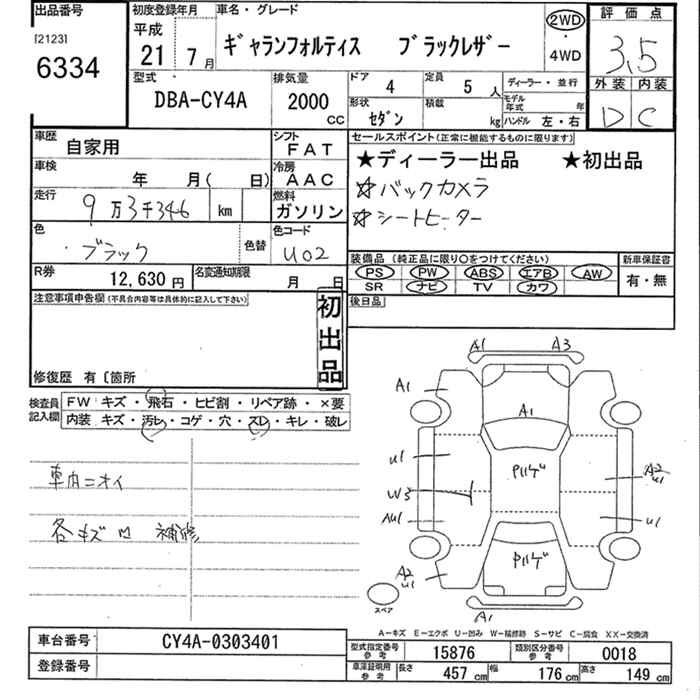 出品番号
[2123]
6334
初度登録年月
平成
21 7月
車名・グレード
ギャランフォルティス ブラックレザー
2WD
・
4WD
評価点
3.5
外装 内装
D C
型式
DBA-CY4A
排気量
2000
CC
ドア
4
定員
5人
形状
セダン
積載
kg
ディーラー・並行
モデル年式 年
ハンドル 左・右
車歴
自家用
シフト
FAT
車検
年 月( 日)
冷房
AAC
走行
9万3千346 km
燃料
ガソリン
色
ブラック
色替
色コード
U02
R券
12,630円
名変通知期限
月 日
セールスポイント(正常に機能するものに限ります)
★ディーラー出品 ★初出品
☆バックカメラ
☆シートヒーター
装備品(純正品に限り○をつけてください)
PS PW ABS エアB AW
SR ナビ TV カワ
新車保証書
有・無
後日品
注意事項申告欄(不具合内容等は具体的に記入して下さい)
初出品
修復歴 有〔箇所
検査員記入欄
FW キズ・飛石・ヒビ割・リペア跡・×要
内装 キズ・汚レ・コゲ・穴・スレ・キレ・破レ
車内ニオイ
各キズ凹 補修
A1 A3
A1
A1
U1
Pルーゲ
A2
U1
W3
AU1
U1
Pルーゲ
A2
U1
A1
スペア
A-キズ E-エクボ U-凹み W-補修跡 S-サビ C-腐食 XX-交換済
車台番号
CY4A-0303401
登録番号
型式指定番号
参考
15876
類別区分番号
参考
0018
車庫証明用
参考
長さ
457cm
幅
176cm
高さ
149cm